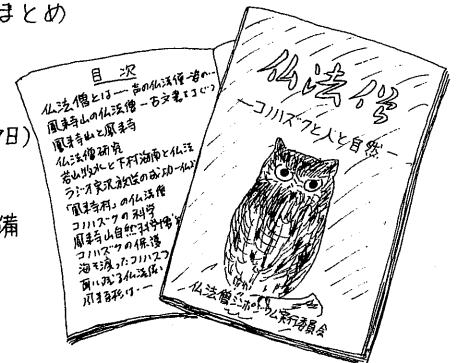 まとめ
目次
仏法僧とは――声の仏法僧・姿の…
鳳来寺山の仏法僧―古文書をさぐっ
鳳来寺山と鳳来寺
仏法僧研究
若山牧水と下村海南と仏法
ラジオ実況放送の成功―仏法
「鳳来寺村」の仏法僧
コノハズクの科学
鳳来寺山自然科学博
コノハズクの保護
海を渡ったコノハズク
日)
備
仏法僧
―コノハズクと人と自然―
仏法僧シンポジウム実行委員会